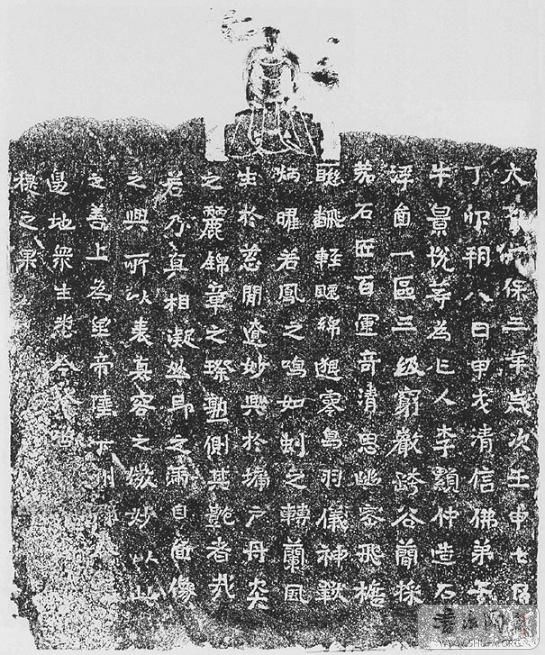 大齊天保三年歲次壬申七月
丁卯朔八日甲戌清信佛弟子
牛景悅等為亡人李顯仲造石
浮啚一區三級窮巖跨谷簡採
若石匠百運奇清思幽密飛檐
聮翩輕颸綿邈寥鳥羽儀神獸
炳曜若鳳之鳴如虯之轉蘭風
生於葱閒遼妙興於墉戶丹炎
之麗錦章之璨孰側其艷者哉
若乃真相凝然昂之滿目啚像
之興所以表真容之微妙以此
之善上為皇帝陛下州
地衆生
之果